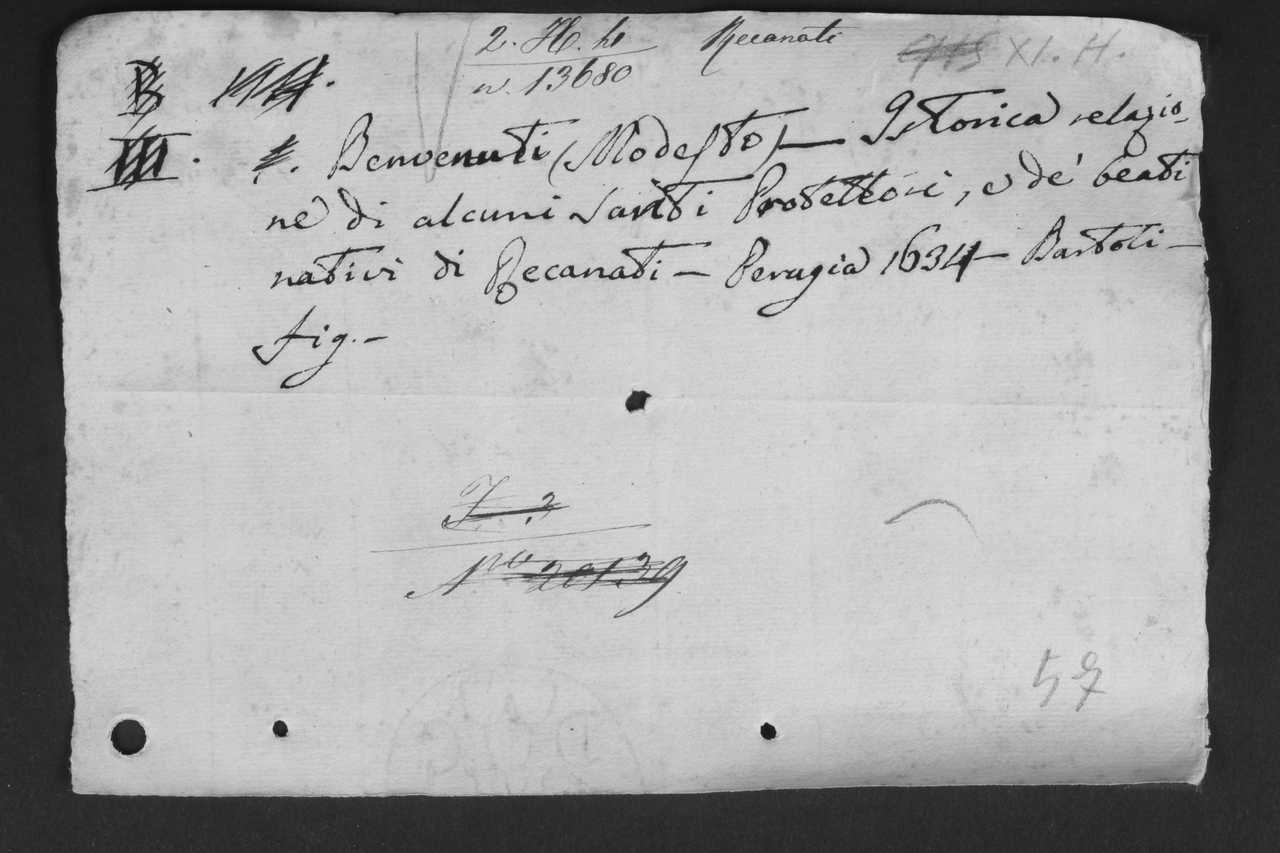 2. H. h Recanati
n. 13680 XI. H.
Benvenuti (Modesto) — Istorica relazio-
ne di alcuni Santi Protettori, e de' beati
nativi di Recanati — Perugia 1634 — Bartoli —
fig. -
I. 2
N.ro 20139
57